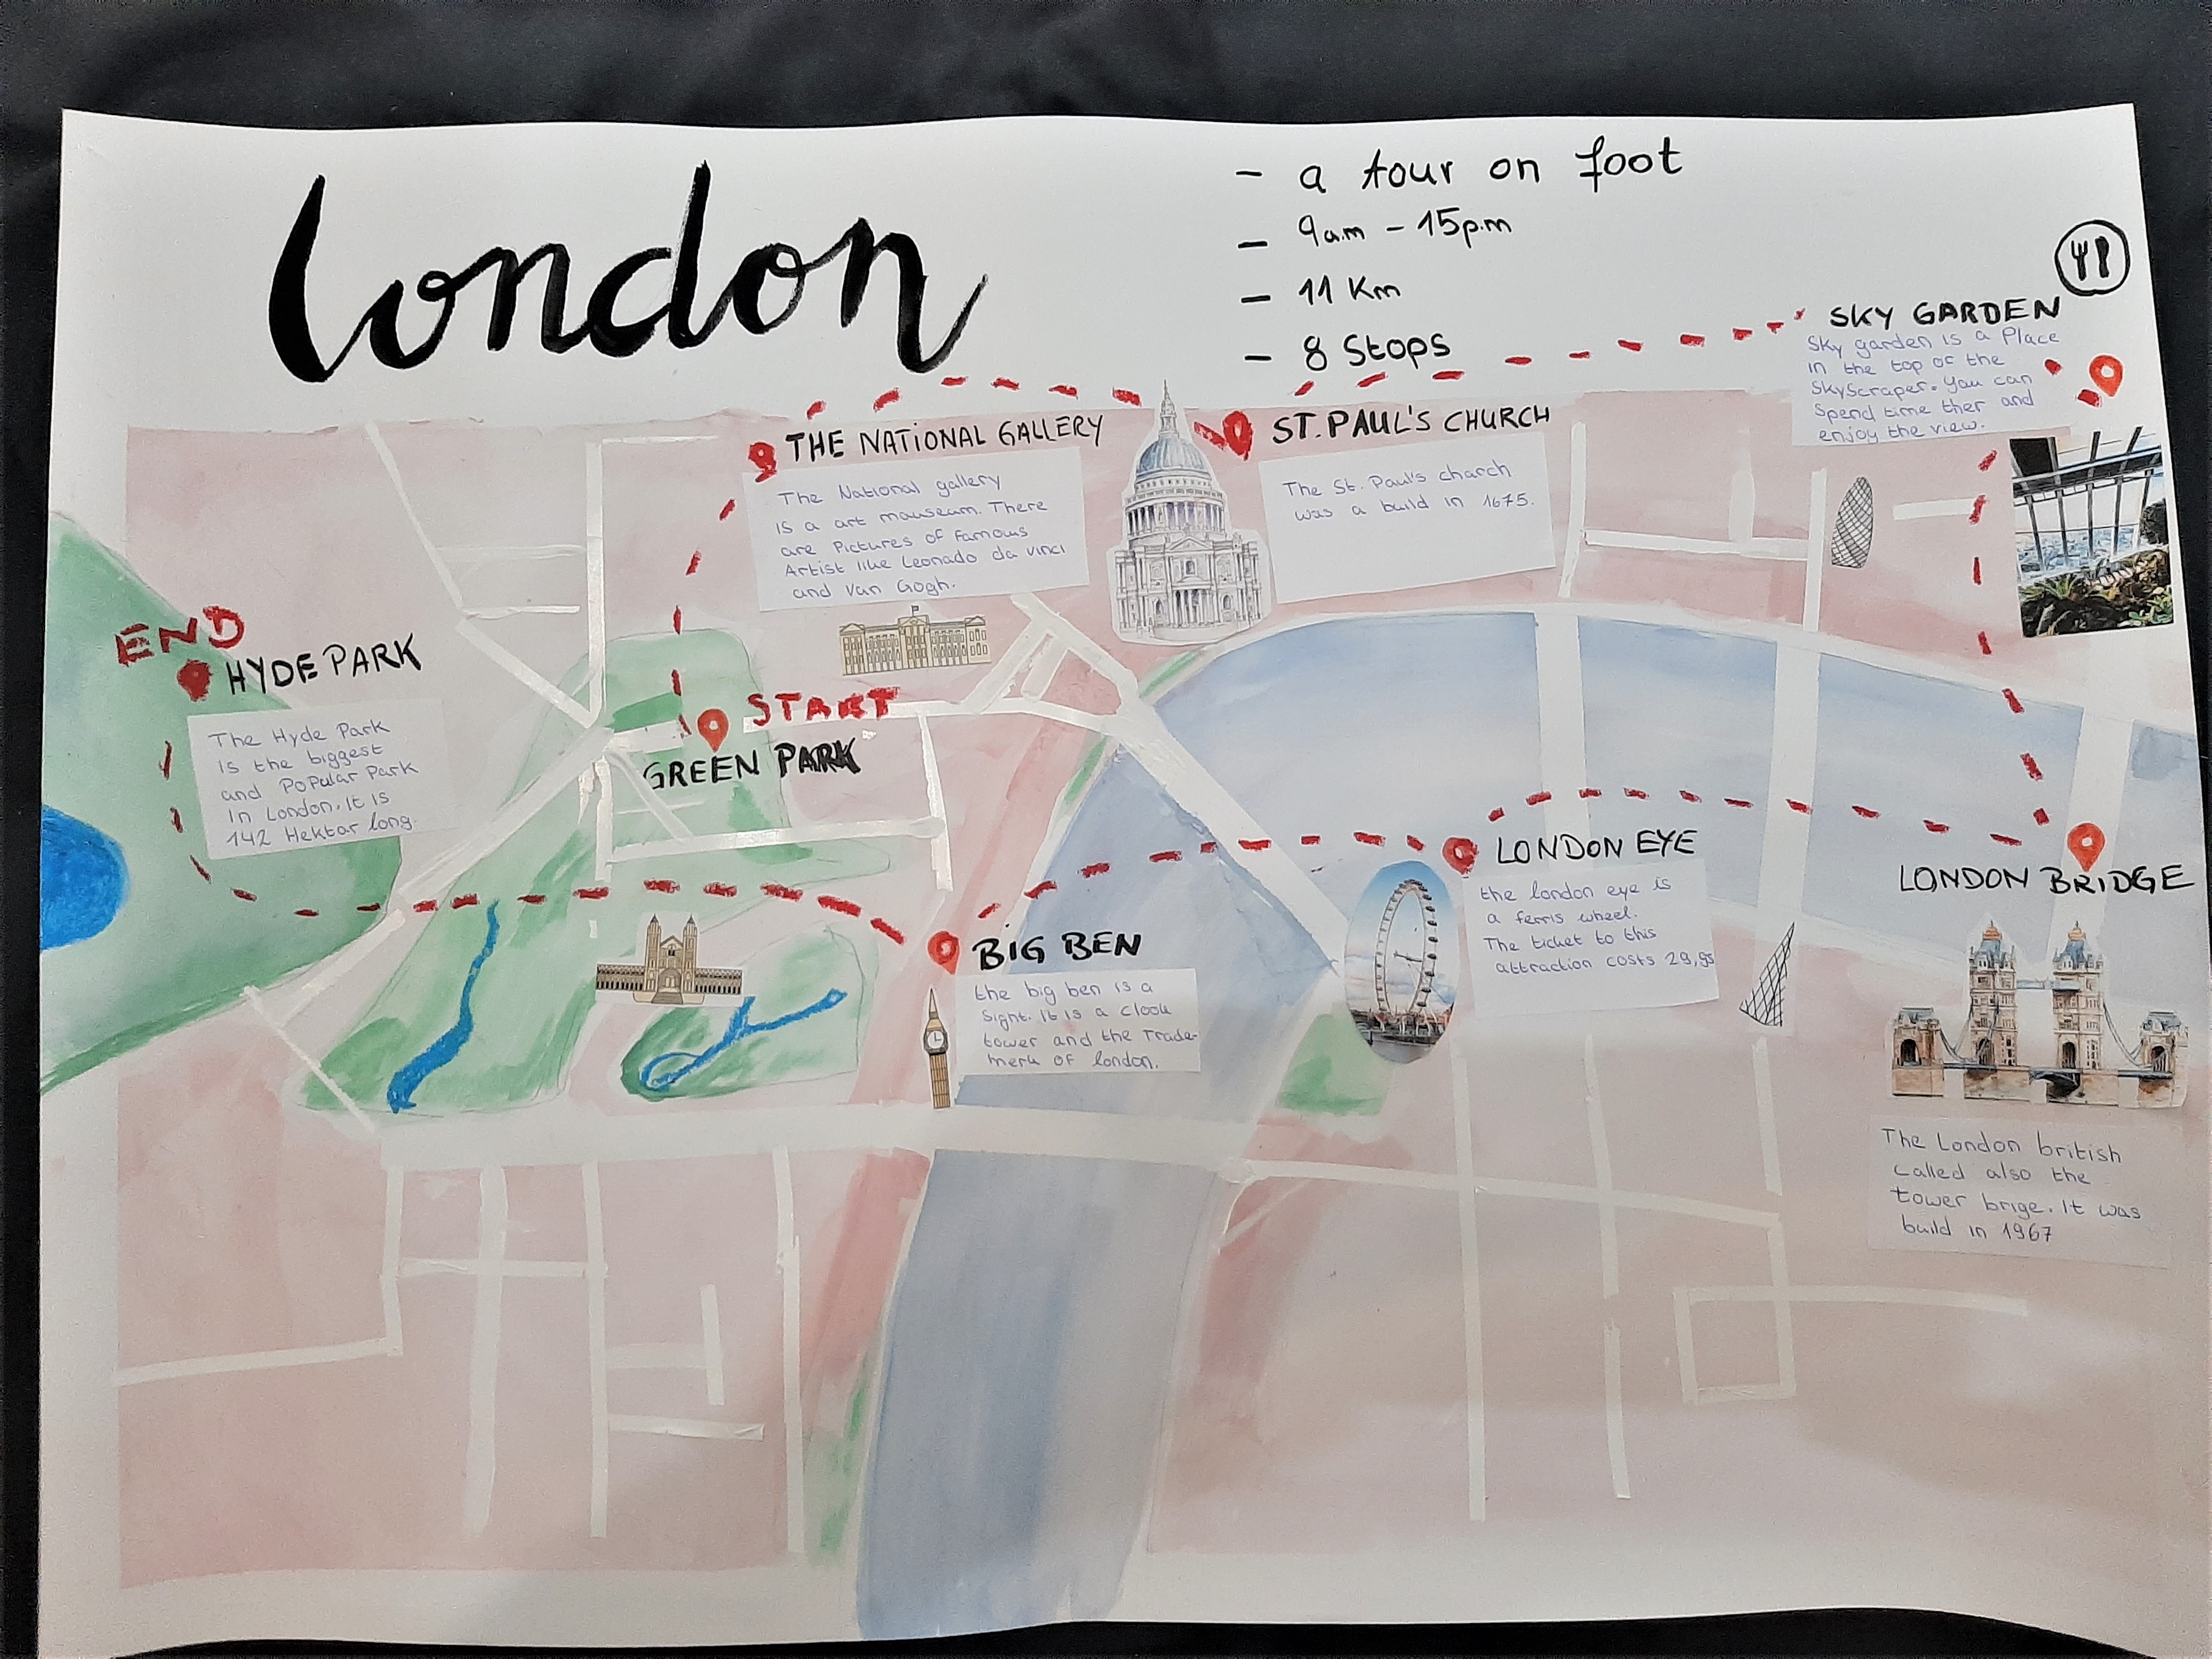 London
- a tour on foot
- 9am - 15pm
- 11 Km
- 8 Stops
SKY GARDEN
Sky garden is a Place
in the top of the
Skyscraper. You can
Spend time ther and
enjoy the view.
THE NATIONAL GALLERY
The National gallery
is a art mauseum. There
are Pictures of famous
Artist like Leonado da vinci
and Van Gogh.
ST. PAUL'S CHURCH
The St. Paul's church
was a build in 1675.
END
HYDE PARK
The Hyde Park
is the biggest
and Popular Park
in London. It is
142 Hektar long.
START
GREEN PARK
BIG BEN
the big ben is a
Sight. It is a clock
tower and the Trade-
merk of london.
LONDON EYE
the london eye is
a ferris wheel.
The ticket to this
attraction costs 29,95
LONDON BRIDGE
The London british
called also the
tower brige. It was
build in 1967